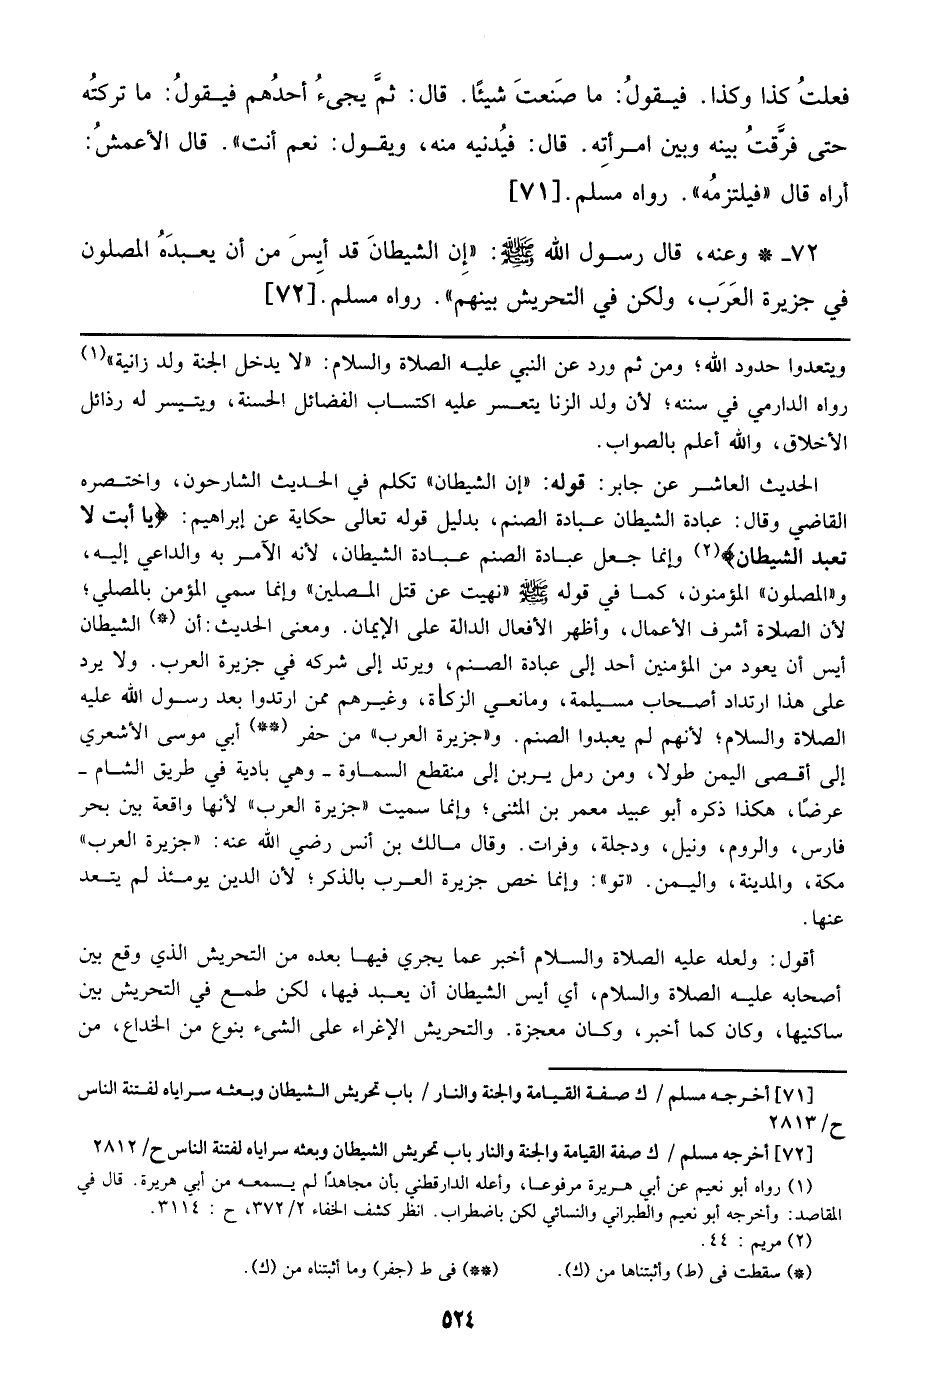 فعلتُ كذا وكذا. فيقولُ: ما صنَعتَ شيئًا. قال: ثمَّ يجيءُ أحدُهم فيقولُ: ما تركتُه
حتى فرَّقتُ بينه وبين امرأتِه. قال: فيُدنيه منه، ويقول: نعم أنت». قال الأعمشُ:
أراه قال «فيلتزمُه». رواه مسلم.[٧١]
٧٢ـ * وعنه، قال رسول الله ﷺ: «إِن الشيطانَ قد أيِسَ من أن يعبدَهُ المصلون
في جزيرة العَرَب، ولكن في التحريش بينهم». رواه مسلم.[٧٢]
ويتعدوا حدود الله؛ ومن ثم ورد عن النبي عليه الصلاة والسلام: «لا يدخل الجنة ولد زانية»(١)
رواه الدارمي في سننه؛ لأن ولد الزنا يتعسر عليه اكتساب الفضائل الحسنة، ويتيسر له رذائل
الأخلاق، والله أعلم بالصواب.
الحديث العاشر عن جابر: قوله: «إن الشيطان» تكلم في الحديث الشارحون، واختصره
القاضي وقال: عبادة الشيطان عبادة الصنم، بدليل قوله تعالى حكاية عن إبراهيم: ﴿يا أبت لا
تعبد الشيطان﴾(٢) وإنما جعل عبادة الصنم عبادة الشيطان، لأنه الآمر به والداعي إليه،
و«المصلون» المؤمنون، كما في قوله ﷺ «نهيت عن قتل المصلين» وإنما سمي المؤمن بالمصلي؛
لأن الصلاة أشرف الأعمال، وأظهر الأفعال الدالة على الإيمان. ومعنى الحديث: أن (*) الشيطان
أيس أن يعود من المؤمنين أحد إلى عبادة الصنم، ويرتد إلى شركه في جزيرة العرب. ولا يرد
على هذا ارتداد أصحاب مسيلمة، ومانعي الزكاة، وغيرهم ممن ارتدوا بعد رسول الله عليه
الصلاة والسلام؛ لأنهم لم يعبدوا الصنم. و«جزيرة العرب» من حفر (**) أبي موسى الأشعري
إلى أقصى اليمن طولا، ومن رمل يبرين إلى منقطع السماوة ـ وهي بادية في طريق الشام ـ
عرضًا، هكذا ذكره أبو عبيد معمر بن المثنى؛ وإنما سميت «جزيرة العرب» لأنها واقعة بين بحر
فارس، والروم، ونيل، ودجلة، وفرات. وقال مالك بن أنس رضي الله عنه: «جزيرة العرب»
مكة، والمدينة، واليمن. «تو»: وإنما خص جزيرة العرب بالذكر؛ لأن الدين يومئذ لم يتعد
عنها.
أقول: ولعله عليه الصلاة والسلام أخبر عما يجري فيها بعده من التحريش الذي وقع بين
أصحابه عليه الصلاة والسلام، أي أيس الشيطان أن يعبد فيها، لكن طمع في التحريش بين
ساكنيها، وكان كما أخبر، وكان معجزة. والتحريش الإغراء على الشيء بنوع من الخداع، من
[٧١] أخرجه مسلم / ك صفة القيامة والجنة والنار / باب تحريش الشيطان وبعثه سراياه لفتنة الناس
ح/ ٢٨١٣
[٧٢] أخرجه مسلم / ك صفة القيامة والجنة والنار باب تحريش الشيطان وبعثه سراياه لفتنة الناس ح/ ٢٨١٢
(١) رواه أبو نعيم عن أبي هريرة مرفوعا، وأعله الدارقطني بأن مجاهدًا لم يسمعه من أبي هريرة. قال في
المقاصد: وأخرجه أبو نعيم والطبراني والنسائي لكن باضطراب. انظر كشف الخفاء ٣٧٢/٢، ح : ٣١١٤.
(٢) مريم : ٤٤.
(*) سقطت في (ط) وأثبتناها من (ك). (**) في ط (جفر) وما أثبتناه من (ك).
٥٢٤